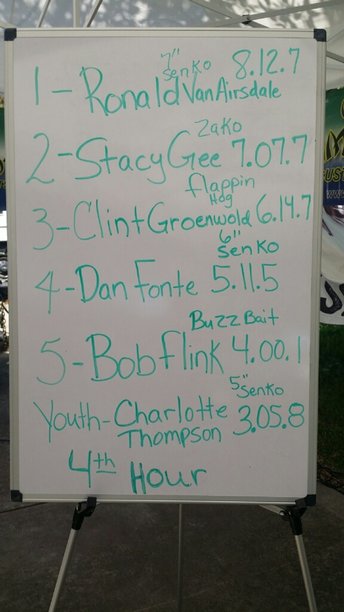 7" Senko
1-Ronald VanAirsdale 8.12.7
Zako
2-Stacy Gee 7.07.7
flappin Hog
3-Clint Groenwold 6.14.7
6" Senko
4-Dan Fonte 5.11.5
Buzz Bait
5-Bob flink 4.00.1
5" Senko
Youth-Charlotte Thompson 3.05.8
4th Hour